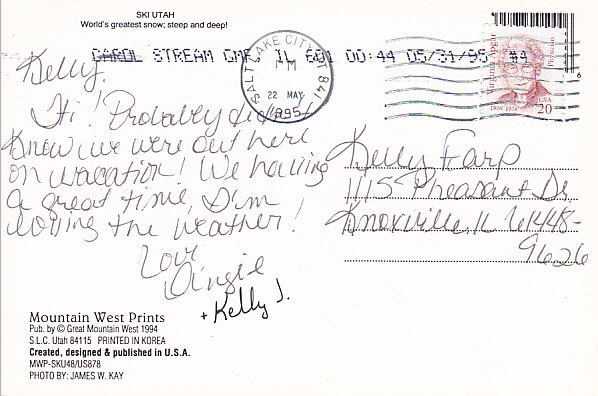 SKI UTAH
World's greatest snow; steep and deep!
CAROL STREAM GMF IL 601 00:44 05/31/95 #4
SALT LAKE CITY UT 841
PM
22 MAY
1995
Virginia Apgar
Physician
1909 1974
USA
20
6
Kelly,
Hi! Probably didn't
know we were out here
on vacation! We having
a great time, I'm
loving the weather!
Love
Angie
+ Kelly J.
Kelly Earp
1115 Pheasant Dr
Knoxville, IL 61448-
9626
Mountain West Prints
Pub. by © Great Mountain West 1994
S.L.C. Utah 84115 PRINTED IN KOREA
Created, designed & published in U.S.A.
MWP-SKU48/US878
PHOTO BY: JAMES W. KAY